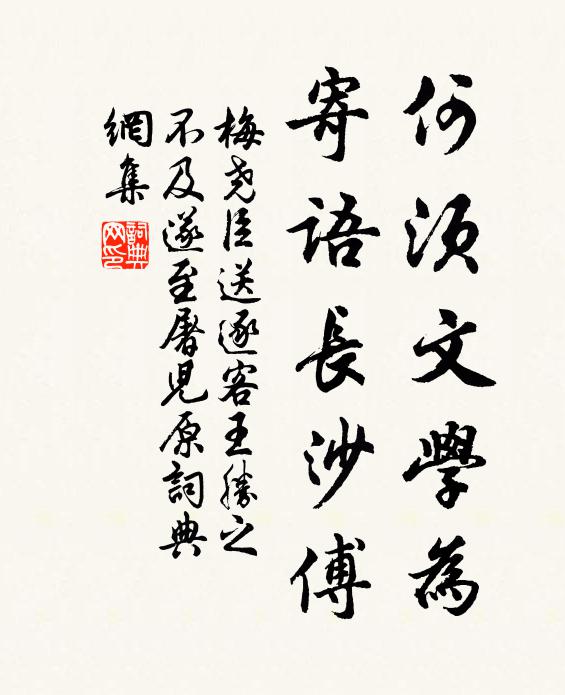 何須文學為
寄語長沙傅
梅堯臣送逐客王勝之
不及遂至屠兒原詞典
網集
詞典
网印